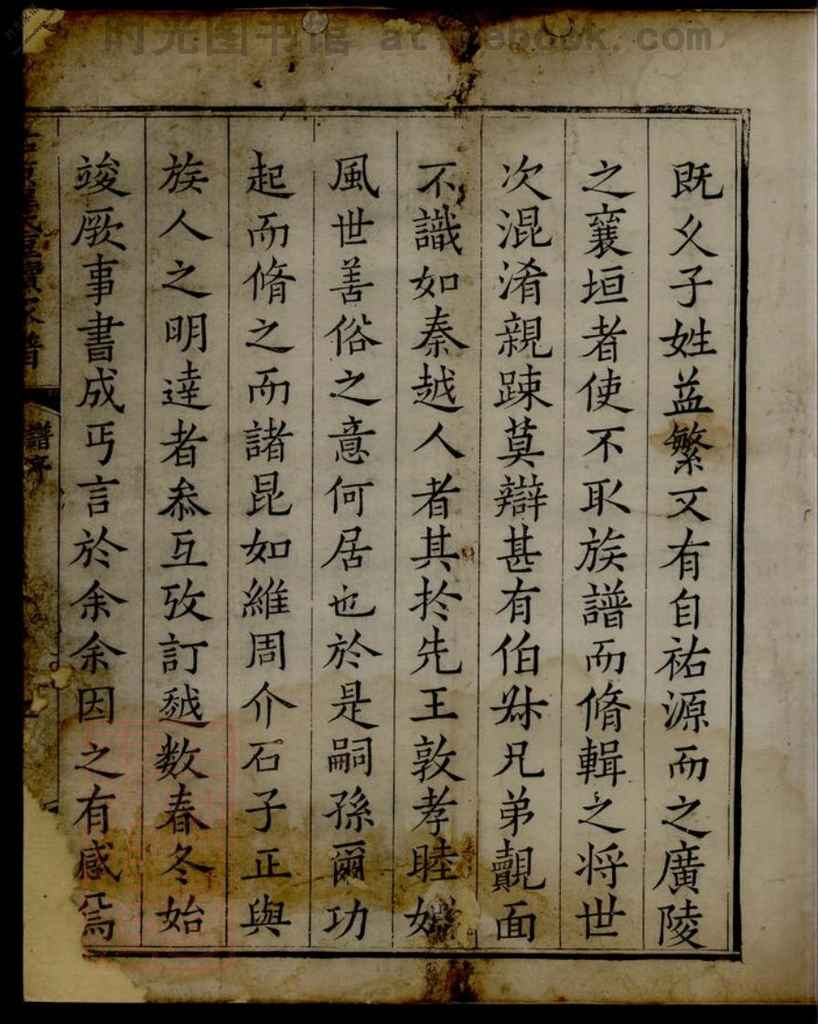 时光图书馆
既乆子姓益繁又有自祐源而之廣陵
之襄垣者使不取族譜而脩輯之将世
次混淆親踈莫辯甚有伯叔兄弟覿面
不識如秦越人者其於先王敦孝睦婣
風世善俗之意何居也於是嗣孫爾功
起而脩之而諸昆如維周介石子正與
族人之明達者叅互攷訂越数春冬始
竣厥事書成丐言於余余因之有感焉
家譜
譜序